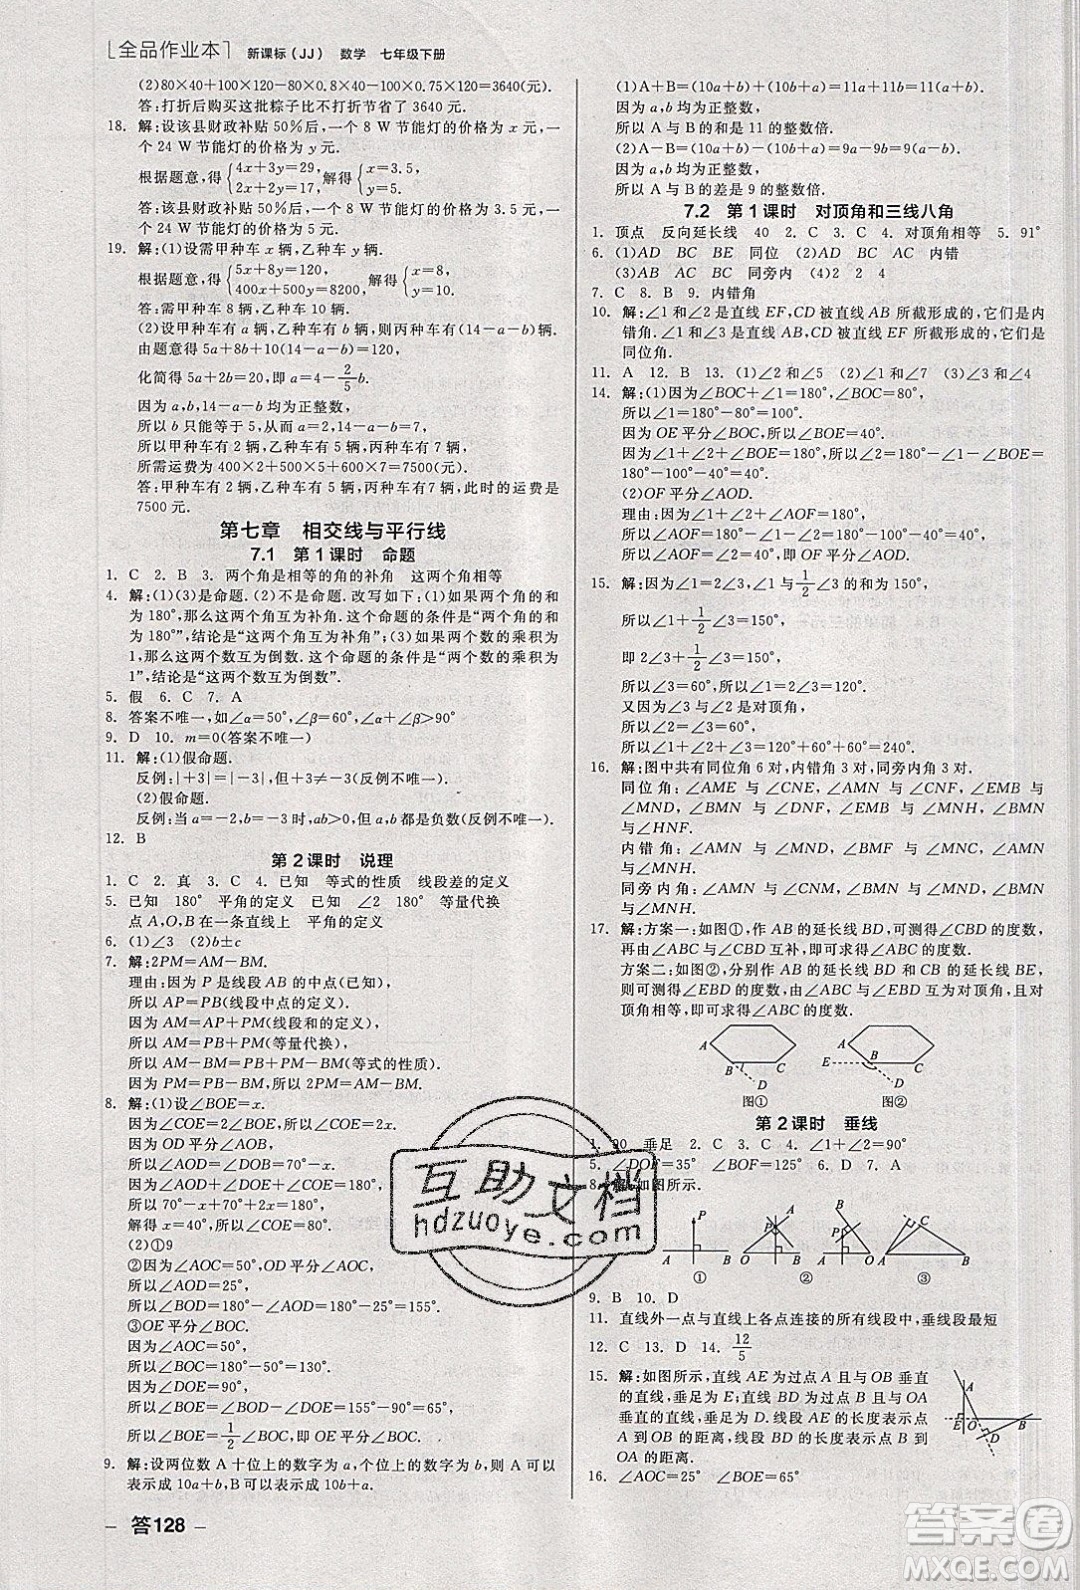 [全品作业本] 新课标(JJ) 数学 七年级下册
(2)80×40+100×120-80×0.8×40-100×0.75×120=3640(元).
答:打折后购买这批粽子比不打折节省了 3640 元.
18. 解:设该县财政补贴 50%后,一个 8 W 节能灯的价格为 x 元,
一个 24 W 节能灯的价格为 y 元.
根据题意,得{4x+3y=29, 2x+2y=17, 解得{x=3.5, y=5.
答:该县财政补贴 50%后,一个 8 W 节能灯的价格为 3.5 元,一
个 24 W 节能灯的价格为 5 元.
19. 解:(1)设需甲种车 x 辆,乙种车 y 辆.
根据题意,得{5x+8y=120, 400x+500y=8200, 解得{x=8, y=10.
答:需甲种车 8 辆,乙种车 10 辆.
(2)设甲种车有 a 辆,乙种车有 b 辆,则丙种车有(14-a-b)辆.
由题意得 5a+8b+10(14-a-b)=120,
化简得 5a+2b=20,即 a=4-2/5b.
因为 a,b,14-a-b 均为正整数,
所以 b 只能等于 5,从而 a=2,14-a-b=7,
所以甲种车有 2 辆,乙种车有 5 辆,丙种车有 7 辆,
所需运费为 400×2+500×5+600×7=7500(元).
答:甲种车有 2 辆,乙种车有 5 辆,丙种车有 7 辆,此时的运费是
7500 元.
第七章 相交线与平行线
7.1 第 1 课时 命题
1. C 2. B 3. 两个角是相等的角的补角 这两个角相等
4. 解:(1)(3)是命题.(2)不是命题.改写如下:(1)如果两个角的和
为 180°,那么这两个角互为补角.这个命题的条件是“两个角的和
为 180°”,结论是“这两个角互为补角”;(3)如果两个数的乘积为
1,那么这两个数互为倒数.这个命题的条件是“两个数的乘积为
1”,结论是“这两个数互为倒数”.
5. 假 6. C 7. A
8. 答案不唯一,如∠α=50°,∠β=60°,∠α+∠β>90°
9. D 10. m=0(答案不唯一)
11. 解:(1)假命题.
反例:|+3|=|-3|,+3≠-3(反例不唯一).
(2)假命题.
反例:当 a=-2,b=-3 时,ab>0,但 a,b 都是负数(反例不唯一).
12. B
第 2 课时 说理
1. C 2. 真 3. C 4. 已知 等式的性质 线段差的定义
5. 已知 180° 平角的定义 已知 ∠2 180° 等量代换
点 A,O,B 在一条直线上 平角的定义
6. (1)∠3 (2)b±c
7. 解:2PM=AM-BM.
理由:因为 P 是线段 AB 的中点(已知),
所以 AP=PB(线段中点的定义).
因为 AM=AP+PM(线段和的定义),
所以 AM=PB+PM(等量代换),
所以 AM-BM=PB+PM-BM(等式的性质).
因为 PM=PB-BM,所以 2PM=AM-BM.
8. 解:(1)设∠BOE=x.
因为∠COE=2∠BOE,所以∠COE=2x.
因为 OD 平分∠AOB,
所以∠AOD=∠BOD=70°-x.
因为∠AOD+∠DOE+∠COE=180°,
所以 70°-x+70°+2x=180°,
解得 x=40°,所以∠COE=80°.
(2)①9
②因为∠AOC=50°,OD 平分∠AOC,
所以∠AOD=25°,
所以∠BOD=180°-25°=155°.
③OE 平分∠BOC.
因为∠AOC=50°,
所以∠BOC=130°.
所以∠BOE=∠BOD-∠DOE=65°,
所以∠BOE=1/2∠BOC,即 OE 平分∠BOC.
9. 解:设两位数 A 十位上的数字为 a,个位上的数字为 b,则 A 可以
表示成 10a+b,B 可以表示成 10b+a.
- 答128 -
(1)A+B=(10a+b)+(10b+a)=11a+11b=11(a+b).
因为 a,b 均为正整数,
所以 A 与 B 的和是 11 的整数倍.
(2)A-B=(10a+b)-(10b+a)=9a-9b=9(a-b).
因为 a,b 均为正整数,
所以 A 与 B 的差是 9 的整数倍.
7.2 第 1 课时 对顶角和三线八角
1. 顶点 反向延长线 40 2. C 3. C 4. 对顶角相等 5. 91°
6. (1)AD BC BE 同位 (2)BE AC AC 内错
(3)AB AC BC 同旁内 (4)2 2 4
7. C 8. B 9. 内错角
10. 解:∠1 和∠2 是直线 EF,CD 被直线 AB 所截形成的,它们是内
错角.∠1 和∠3 是直线 AB,CD 被直线 EF 所截形成的,它们是
同位角.
11. A 12. B 13. (1)∠2 (2)∠5 和∠7 (3)∠3 和∠4
14. 解:(1)因为∠BOC+∠1=180°,∠BOC=80°,
所以∠1=180°-80°=100°.
因为 OE 平分∠BOC,所以∠BOE=40°.
因为∠1+∠2+∠BOE=180°,所以∠2=180°-∠1-∠BOE=
180°-100°-40°=40°.
(2)OF 平分∠AOD.
理由:因为∠1+∠2+∠AOF=180°,
所以∠AOF=180°-∠1-∠2=180°-100°-40°=40°.
因为∠AOD=∠BOC=80°,
所以∠AOF=1/2∠AOD,即 OF 平分∠AOD.
15. 解:因为∠1+∠2=3∠3,且∠1 与1/2∠3 的和为 150°,
所以∠1+1/2∠3=150°,∠1+1/2∠3=150°,
即 2∠3=150°,
所以∠3=75°,所以∠1+∠2=3∠3=225°.
又因为∠1 与∠2 是对顶角,
所以∠1=∠2=112.5°.
16. 解:图中共有同位角 6 对,内错角 3 对,同旁内角 3 对.
同位角:∠AME 与∠CNE,∠AMN 与∠CNF,∠EMB 与
∠MND,∠BMN 与∠DNF,∠EMB 与∠MNH,∠BMN 与
∠HNF.
内错角:∠AMN 与∠MND,∠BMN 与∠CNM,∠AMN 与
∠MNH.
同旁内角:∠AMN 与∠CNM,∠BMN 与∠MND,∠BMN 与
∠MNH.
17. 解:方案一:如图①,作 AB 的延长线 BD,可测得∠CBD 的度数,
再由∠ABC 与∠CBD 互补,即可求得∠ABC 的度数.
方案二:如图②,分别作 AB 的延长线 BD 和 CB 的延长线 BE,
则可测得∠EBD 的度数,由于∠ABC 与∠EBD 互为对顶角,且对
顶角相等,即可求得∠ABC 的度数.
A B C D 图①
A B C E D 图②
第 2 课时 垂线
1. 90 垂足 2. C 3. C 4. ∠1+∠2=90°
5. ∠DOF=35° ∠BOF=125° 6. D 7. A
8. 解:如图所示.
A B ① ② A O ③
9. B 10. D
11. 直线外一点与直线上各点连接的所有线段中,垂线段最短
12. C 13. D 14. 12/5
15. 解:如图所示,直线 AE 为过点 A 与 OB 垂直
的直线,垂足为 E;直线 BD 为过点 B 与 OA
垂直的直线,垂足为 D.线段 AE 的长度表示点
A 到 OB 的距离,线段 BD 的长度表示点 B 到
OA 的距离.
A E O B D
16. ∠AOC=25° ∠BOE=65°
互助文档
hdzuoye.com
答案圈
MXQE.COM